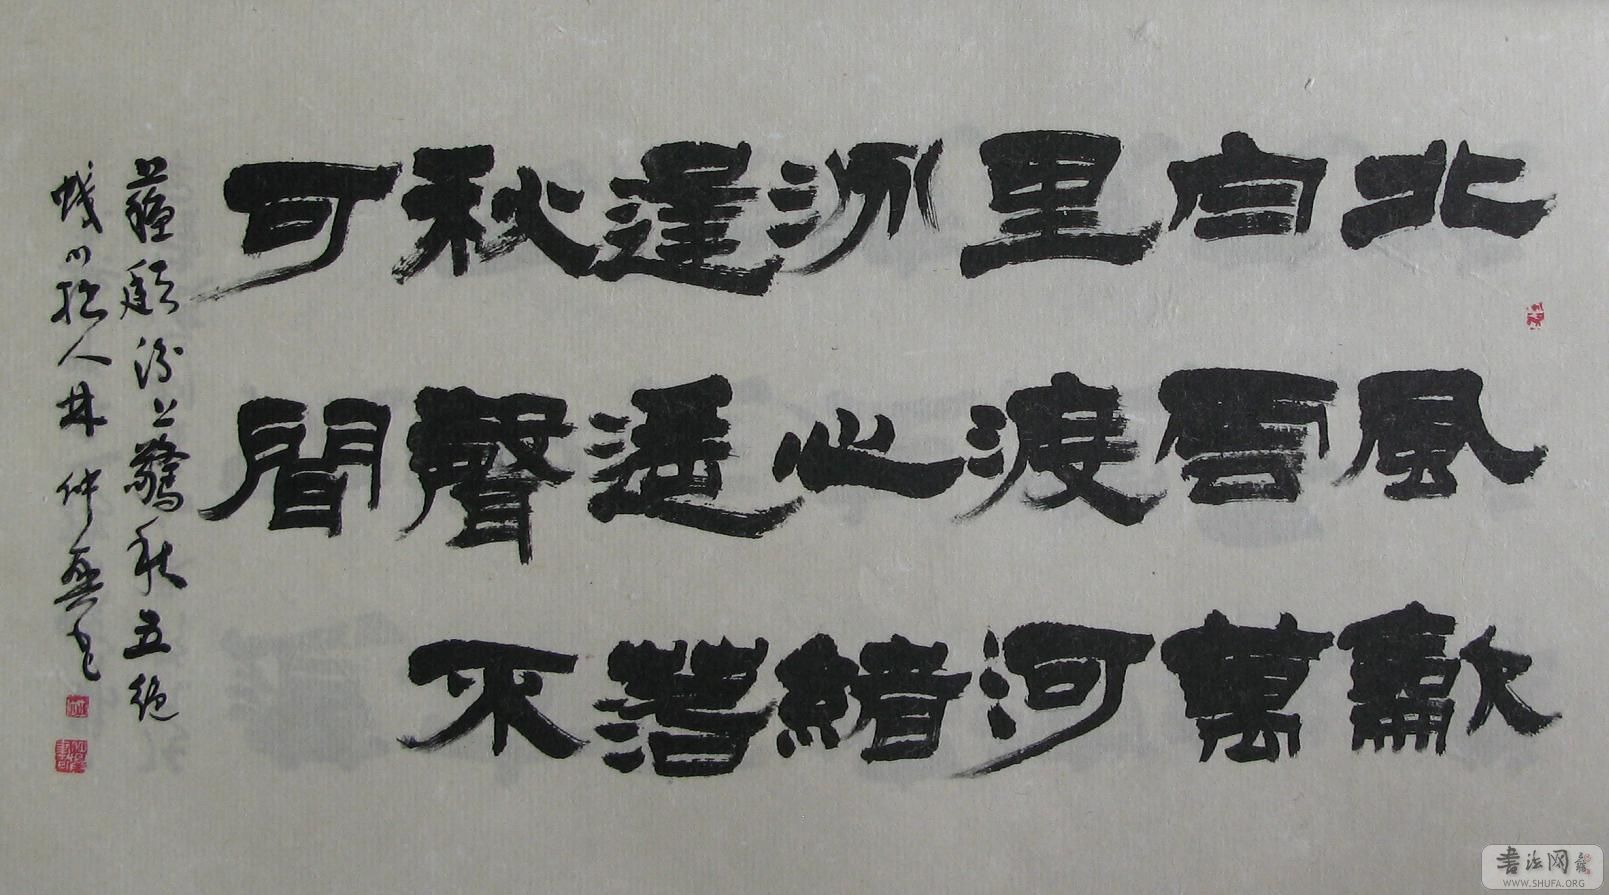 北風龡
白雲萬
里渡河
汾心緒
逢遥落
秋聲不
可聞
蘇頲汾上驚秋五絶
川拙人林仲興書
書法网
WWW.SHUFA.ORG